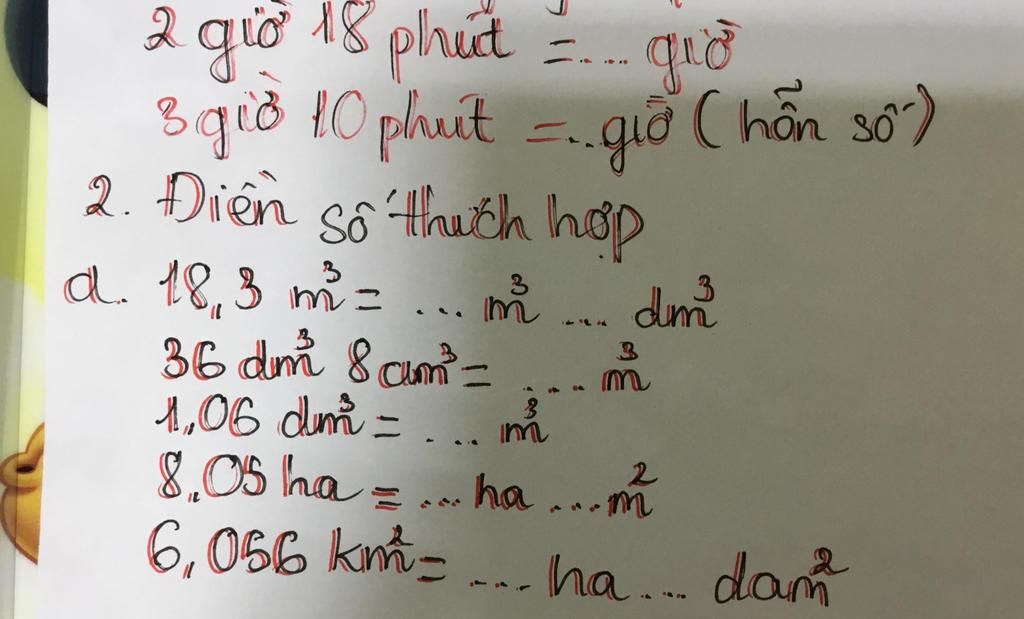 2 giờ 18 phút = .... giờ
3 giờ 10 phút = ... giờ (hỗn số)
2. Điền số thích hợp
a. 18,3 m³ = ... m³ .... dm³
36 dm³ 8 cm³ = .... m³
1,06 dm³ = .... m³
8,05 ha = ... ha ... m²
6,056 km² = .... ha .... dam²